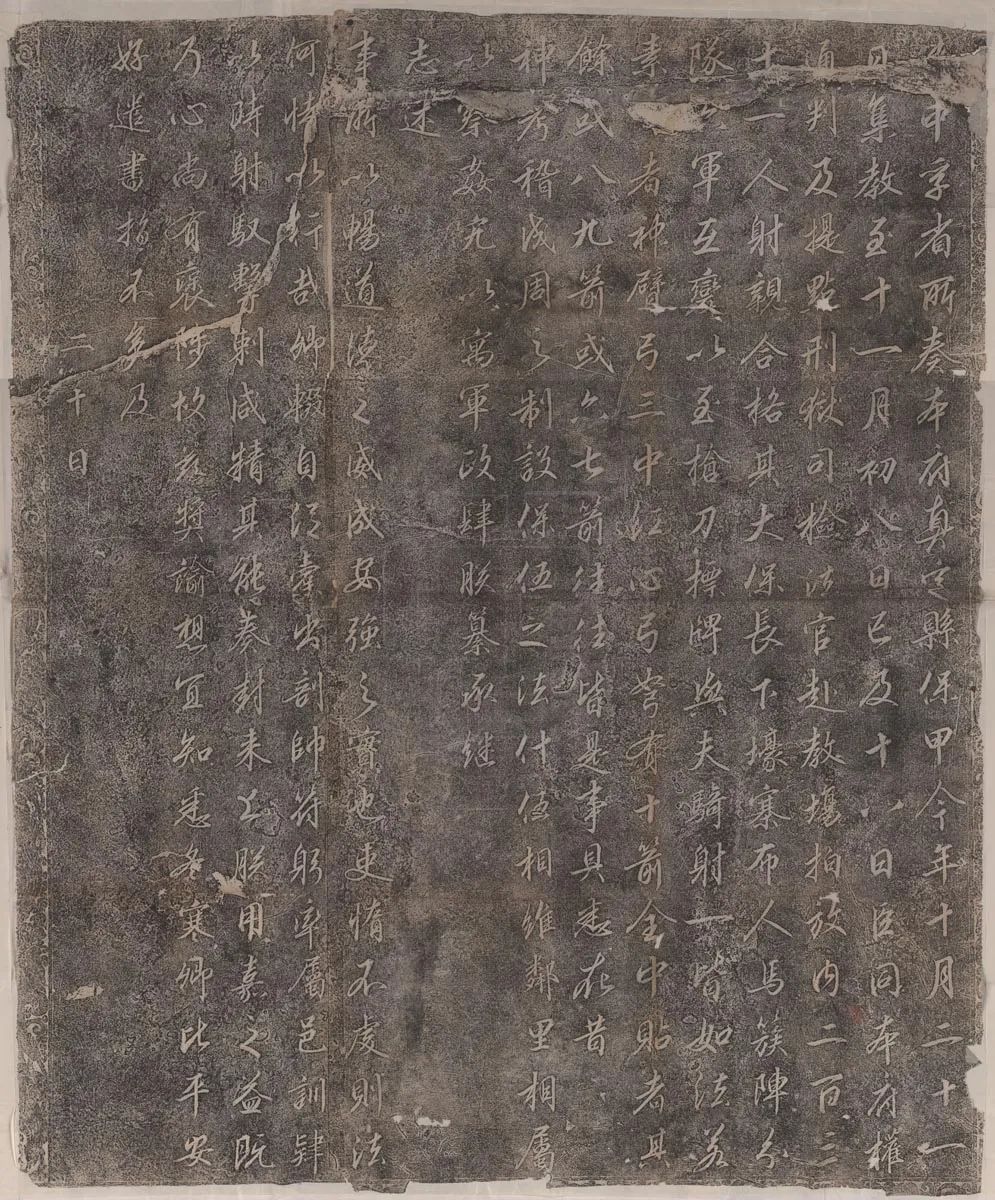 中字省所奏本府真定縣保甲今年十月二十一
日集教至十一月初八日已及十八日臣同本府權
通判及提點刑獄司檢法官赴教場拍放內二百三
十一人射親合格其大保長下壕寨布人馬簇陣分
隊軍互變以至槍刀摽牌與夫騎射一皆如法若
素者神臂弓三中紅心弓弩有十箭全中貼者其
餘或八九箭或六七箭往往皆是事具悉在昔
神考稽成周之制設保伍之法什伍相維鄰里相屬
以察姦宄以寓軍政肆朕纂承繼
志述
事所以暢道德之威成安強之實也吏惰不虔則法
何恃以行哉卿輟自從橐出剖帥符躬率屬邑訓肄
以時射馭擊刺咸精其能奏封來上朕用嘉之益既
乃心尚有褒陟故茲獎諭想宜知悉冬寒卿比平安
好遣書指不多及
二十日